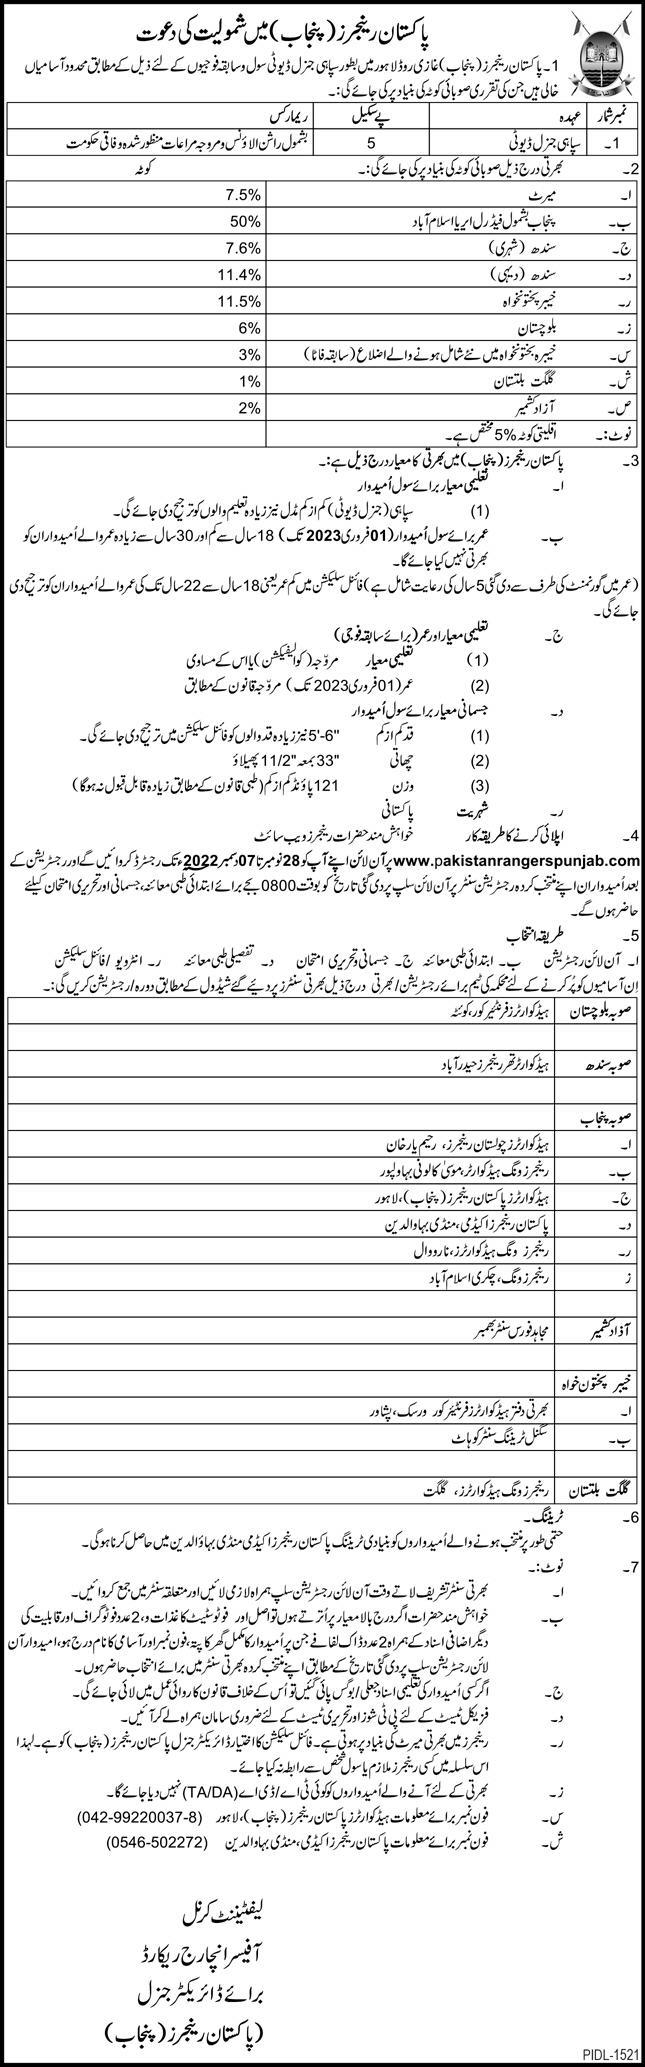 پاکستان رینجرز (پنجاب) میں شمولیت کی دعوت
1۔ پاکستان رینجرز (پنجاب) غازی روڈ لاہور میں بطور سپاہی جنرل ڈیوٹی سول و سابقہ فوجیوں کے لئے ذیل کے مطابق محدود آسامیاں
خالی ہیں جن کی تقرری صوبائی کوٹہ کی بنیاد پر کی جائے گی:۔
نمبر شمار عہدہ پے سکیل ریمارکس
1۔ سپاہی جنرل ڈیوٹی 5 بشمول راشن الاؤنس و مروجہ مراعات منظور شدہ وفاقی حکومت
2۔ بھرتی درج ذیل صوبائی کوٹہ کی بنیاد پر کی جائے گی:۔ کوٹہ
ا۔ میرٹ 7.5%
ب۔ پنجاب بشمول فیڈرل ایریا اسلام آباد 50%
ج۔ سندھ (شہری) 7.6%
د۔ سندھ (دیہی) 11.4%
ر۔ خیبر پختونخواہ 11.5%
ز۔ بلوچستان 6%
س۔ خیبرہ پختونخواہ میں نئے شامل ہونے والے اضلاع (سابقہ فاٹا) 3%
ش۔ گلگت بلتستان 1%
ص۔ آزاد کشمیر 2%
نوٹ:۔ اقلیتی کوٹہ 5% مختص ہے۔
3۔ پاکستان رینجرز (پنجاب) میں بھرتی کا معیار درج ذیل ہے:۔
ا۔ تعلیمی معیار برائے سول اُمیدوار
(1) سپاہی (جنرل ڈیوٹی) کم از کم مڈل نیز زیادہ تعلیم والوں کو ترجیح دی جائے گی۔
ب۔ عمر برائے سول اُمیدوار (01 فروری 2023 تک) 18 سال سے کم اور 30 سال سے زیادہ عمر والے اُمیدواران کو
بھرتی نہیں کیا جائے گا۔
(عمر میں گورنمنٹ کی طرف سے دی گئی 5 سال کی رعایت شامل ہے) فائنل سلیکشن میں کم عمر یعنی 18 سال سے 22 سال تک کی عمر والے اُمیدواران کو ترجیح دی
جائے گی۔
ج۔ تعلیمی معیار اور عمر (برائے سابقہ فوجی)
(1) تعلیمی معیار مروّجہ (کوالیفکیشن) یا اس کے مساوی
(2) عمر (01 فروری 2023 تک) مروّجہ قانون کے مطابق
د۔ جسمانی معیار برائے سول اُمیدوار
(1) قد کم از کم 5'-6" نیز زیادہ قد والوں کو فائنل سلیکشن میں ترجیح دی جائے گی۔
(2) چھاتی 33" بمعہ 11/2" پھیلاؤ
(3) وزن 121 پاؤنڈ کم از کم (طبی قانون کے مطابق زیادہ قابل قبول نہ ہو گا)
ر۔ شہریت پاکستانی
4۔ اپلائی کرنے کا طریقہ کار خواہش مند حضرات رینجرز ویب سائٹ
www.pakistanrangerspunjab.com پر آن لائن اپنے آپ کو 28 نومبر تا 07 دسمبر 2022ء تک رجسٹرڈ کروائیں گے اور رجسٹریشن کے
بعد اُمیدواران اپنے منتخب کردہ رجسٹریشن سنٹر پر آن لائن سلپ پر دی گئی تاریخ کو بوقت 0800 بجے برائے ابتدائی طبی معائنہ، جسمانی اور تحریری امتحان کیلئے
حاضر ہوں گے۔
5۔ طریقہ انتخاب
ا۔ آن لائن رجسٹریشن ب۔ ابتدائی طبی معائنہ ج۔ جسمانی و تحریری امتحان د۔ تفصیلی طبی معائنہ ر۔ انٹرویو / فائنل سلیکشن
اِن آسامیوں کو پُر کرنے کے لئے محکمہ کی ٹیم برائے رجسٹریشن / بھرتی درج ذیل بھرتی سنٹرز پر دیئے گئے شیڈول کے مطابق دورہ / رجسٹریشن کریں گی:۔
صوبہ بلوچستان ہیڈ کوارٹرز فرنٹیئر کور، کوئٹہ
صوبہ سندھ ہیڈ کوارٹر تھر رینجرز حیدر آباد
صوبہ پنجاب
ا۔ ہیڈ کوارٹرز چولستان رینجرز، رحیم یار خان
ب۔ رینجرز ونگ ہیڈ کوارٹر، موسیٰ کالونی بہاولپور
ج۔ ہیڈ کوارٹرز پاکستان رینجرز (پنجاب)، لاہور
د۔ پاکستان رینجرز اکیڈمی، منڈی بہاوالدین
ر۔ رینجرز ونگ ہیڈ کوارٹرز، نارووال
ز رینجرز ونگ، چکری اسلام آباد
آذاد کشمیر مجاہد فورس سنٹر بھمبر
خیبر پختون خواہ
ا۔ بھرتی دفتر ہیڈ کوارٹرز فرنٹیئر کور ورسک، پشاور
ب۔ سگنل ٹریننگ سنٹر کوہاٹ
گلگت بلتستان رینجرز ونگ ہیڈ کوارٹرز، گلگت
6۔ ٹریننگ۔
حتمی طور پر منتخب ہونے والے اُمیدواروں کو بنیادی ٹریننگ پاکستان رینجرز اکیڈمی منڈی بہاؤالدین میں حاصل کرنا ہو گی۔
7۔ نوٹ:۔
ا۔ بھرتی سنٹر تشریف لاتے وقت آن لائن رجسٹریشن سلپ ہمراہ لازمی لائیں اور متعلقہ سنٹر میں جمع کروائیں۔
ب۔ خواہش مند حضرات اگر درج بالا معیار پر اُترتے ہوں تو اصل اور فوٹو سٹیٹ کاغذات و، 2 عدد فوٹو گراف اور قابلیت کی
دیگر اضافی اسناد کے ہمراہ 2 عدد ڈاک لفافے جن پر اُمیدوار کا مکمل گھر کا پتہ، فون نمبر اور آسامی کا نام درج ہو، امیدوار آن
لائن رجسٹریشن سلپ پر دی گئی تاریخ کے مطابق اپنے منتخب کردہ بھرتی سنٹر میں برائے انتخاب حاضر ہوں۔
ج۔ اگر کسی اُمیدوار کی تعلیمی اسناد جعلی / بوگس پائی گئیں تو اُس کے خلاف قانون کاروائی عمل میں لائی جائے گی۔
د۔ فزیکل ٹیسٹ کے لئے پی ٹی شوز اور تحریری ٹیسٹ کے لئے ضروری سامان ہمراہ لے کر آئیں۔
ر۔ رینجرز میں بھرتی میرٹ کی بنیاد پر ہوتی ہے۔ فائنل سلیکشن کا اختیار ڈائریکٹر جنرل پاکستان رینجرز (پنجاب) کو ہے۔ لہذا
اس سلسلہ میں کسی رینجرز ملازم یا سول شخص سے رابطہ نہ کیا جائے۔
ز۔ بھرتی کے لئے آنے والے اُمیدواروں کو کوئی ٹی اے / ڈی اے (TA/DA) نہیں دیا جائے گا۔
س۔ فون نمبر برائے معلومات ہیڈ کوارٹرز پاکستان رینجرز (پنجاب)، لاہور (042-99220037-8)
ش۔ فون نمبر برائے معلومات پاکستان رینجرز اکیڈمی، منڈی بہاوالدین (0546-502272)
لیفٹیننٹ کرنل
آفیسر انچارج ریکارڈ
برائے ڈائریکٹر جنرل
(پاکستان رینجرز (پنجاب)
PIDL-1521